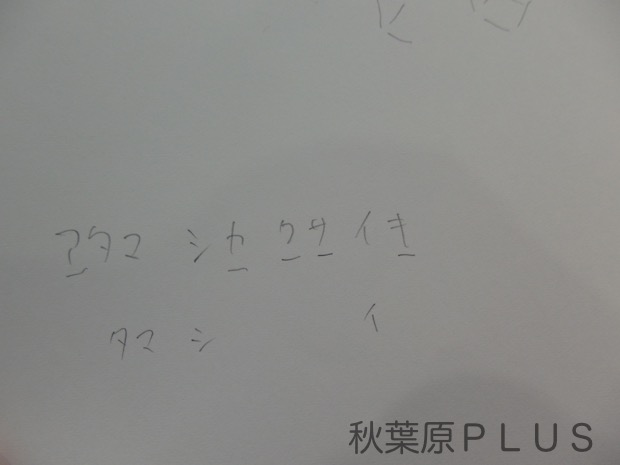 アタマ シカ クサ イキ
タマ シ イ
秋葉原PLUS